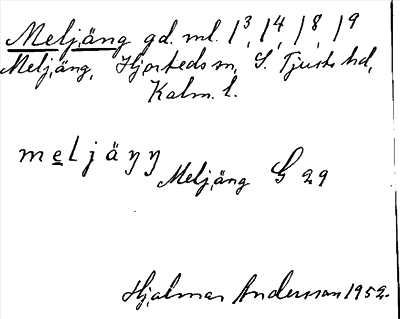 Meljäng gd. ml. 1³, 1⁴, 1⁸, 1⁹
Meljäng, Hjorteds sn, S. Tjusts hd,
Kalm. l.
meljäŋŋ
Meljäng G 29
Hjalmar Andersson 1952.